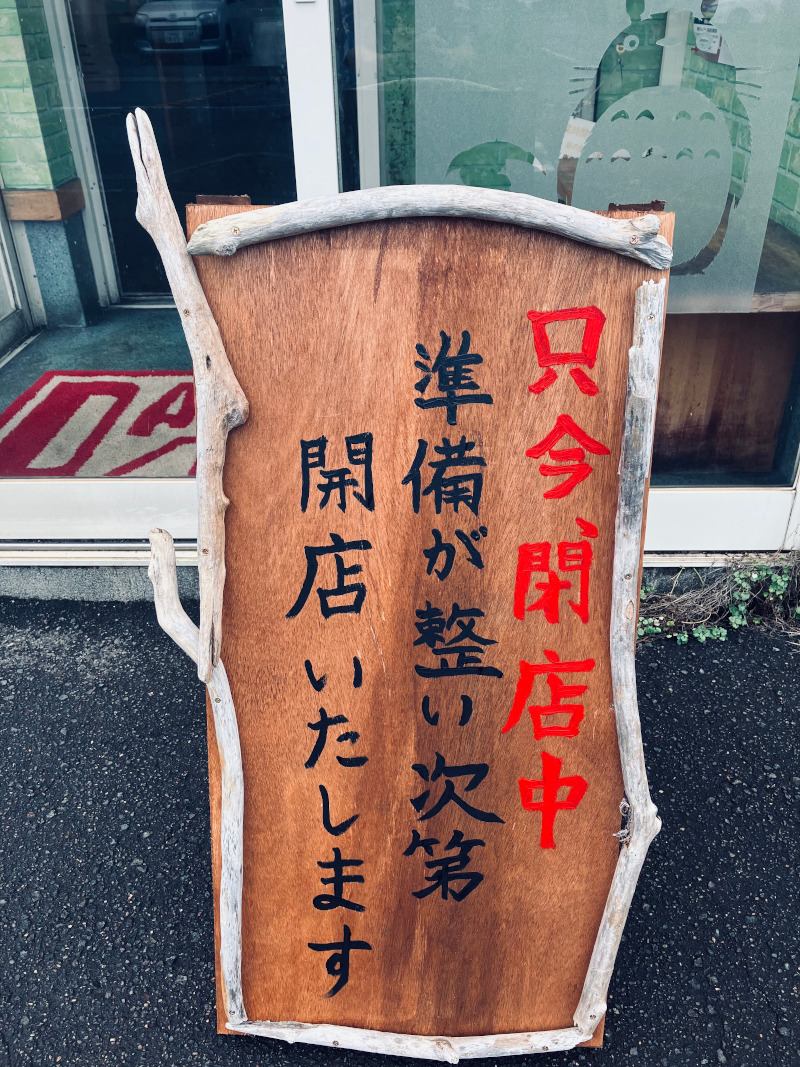 只今、閉店中
準備が整い次第
開店いたします